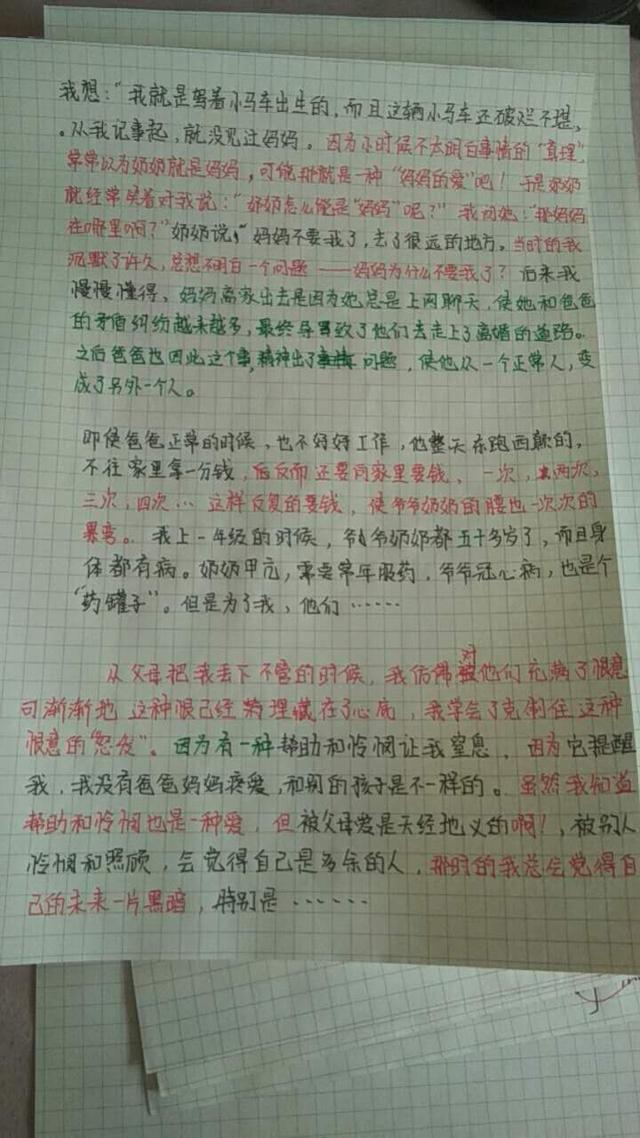 我想：“我就是驾着小马车出生的，而且这辆小马车还破烂不堪，
。从我记事起，就没见过妈妈。因为小时候不太明白事情的“真理”，
常常以为奶奶就是妈妈，可能那就是一种“妈妈的爱”吧！于是奶奶
就经常笑着对我说：“奶奶怎么能是“妈妈”呢？”我问她：“那妈妈
在哪里啊？”奶奶说，“妈妈不要我了，去了很远的地方。当时的我
沉默了许久，总想不明白一个问题——妈妈为什么不要我了？后来我
慢慢懂得，妈妈离家出去是因为她总是上网聊天，使她和爸爸
的矛盾纠纷越来越多，最终导致了他们去走上了离婚的道路。
之后爸爸也因此这个事，精神出了问题，使他从一个正常人，变
成了另外一个人。
即使爸爸正常的时候，也不好好工作，他整天东跑西颠的，
不往家里拿一分钱，后反而还要向家里要钱、一次，两次，
三次，四次…这样反复的要钱，使爷爷奶奶的腰也一次次的
累弯。我上一年级的时候，爷爷奶奶都五十多岁了，而且身
体都有病。奶奶甲亢，需要常年服药，爷爷冠心病，也是个
“药罐子”。但是为了我，他们……
从父母把我丢下不管的时候，我仿佛对他们充满了恨意
可渐渐地这种恨已经埋藏在了心底，我学会了克制住这种
恨意的“怒发”。因为有一种帮助和怜悯让我窒息，因为它提醒
我，我没有爸爸妈妈疼爱，和别的孩子是不一样的。虽然我知道
帮助和怜悯也是一种爱，但被父母爱是天经地义的啊！，被别人
怜悯和照顾，会觉得自己是多余的人，那时的我总会觉得自
己的未来一片黑暗，特别是……